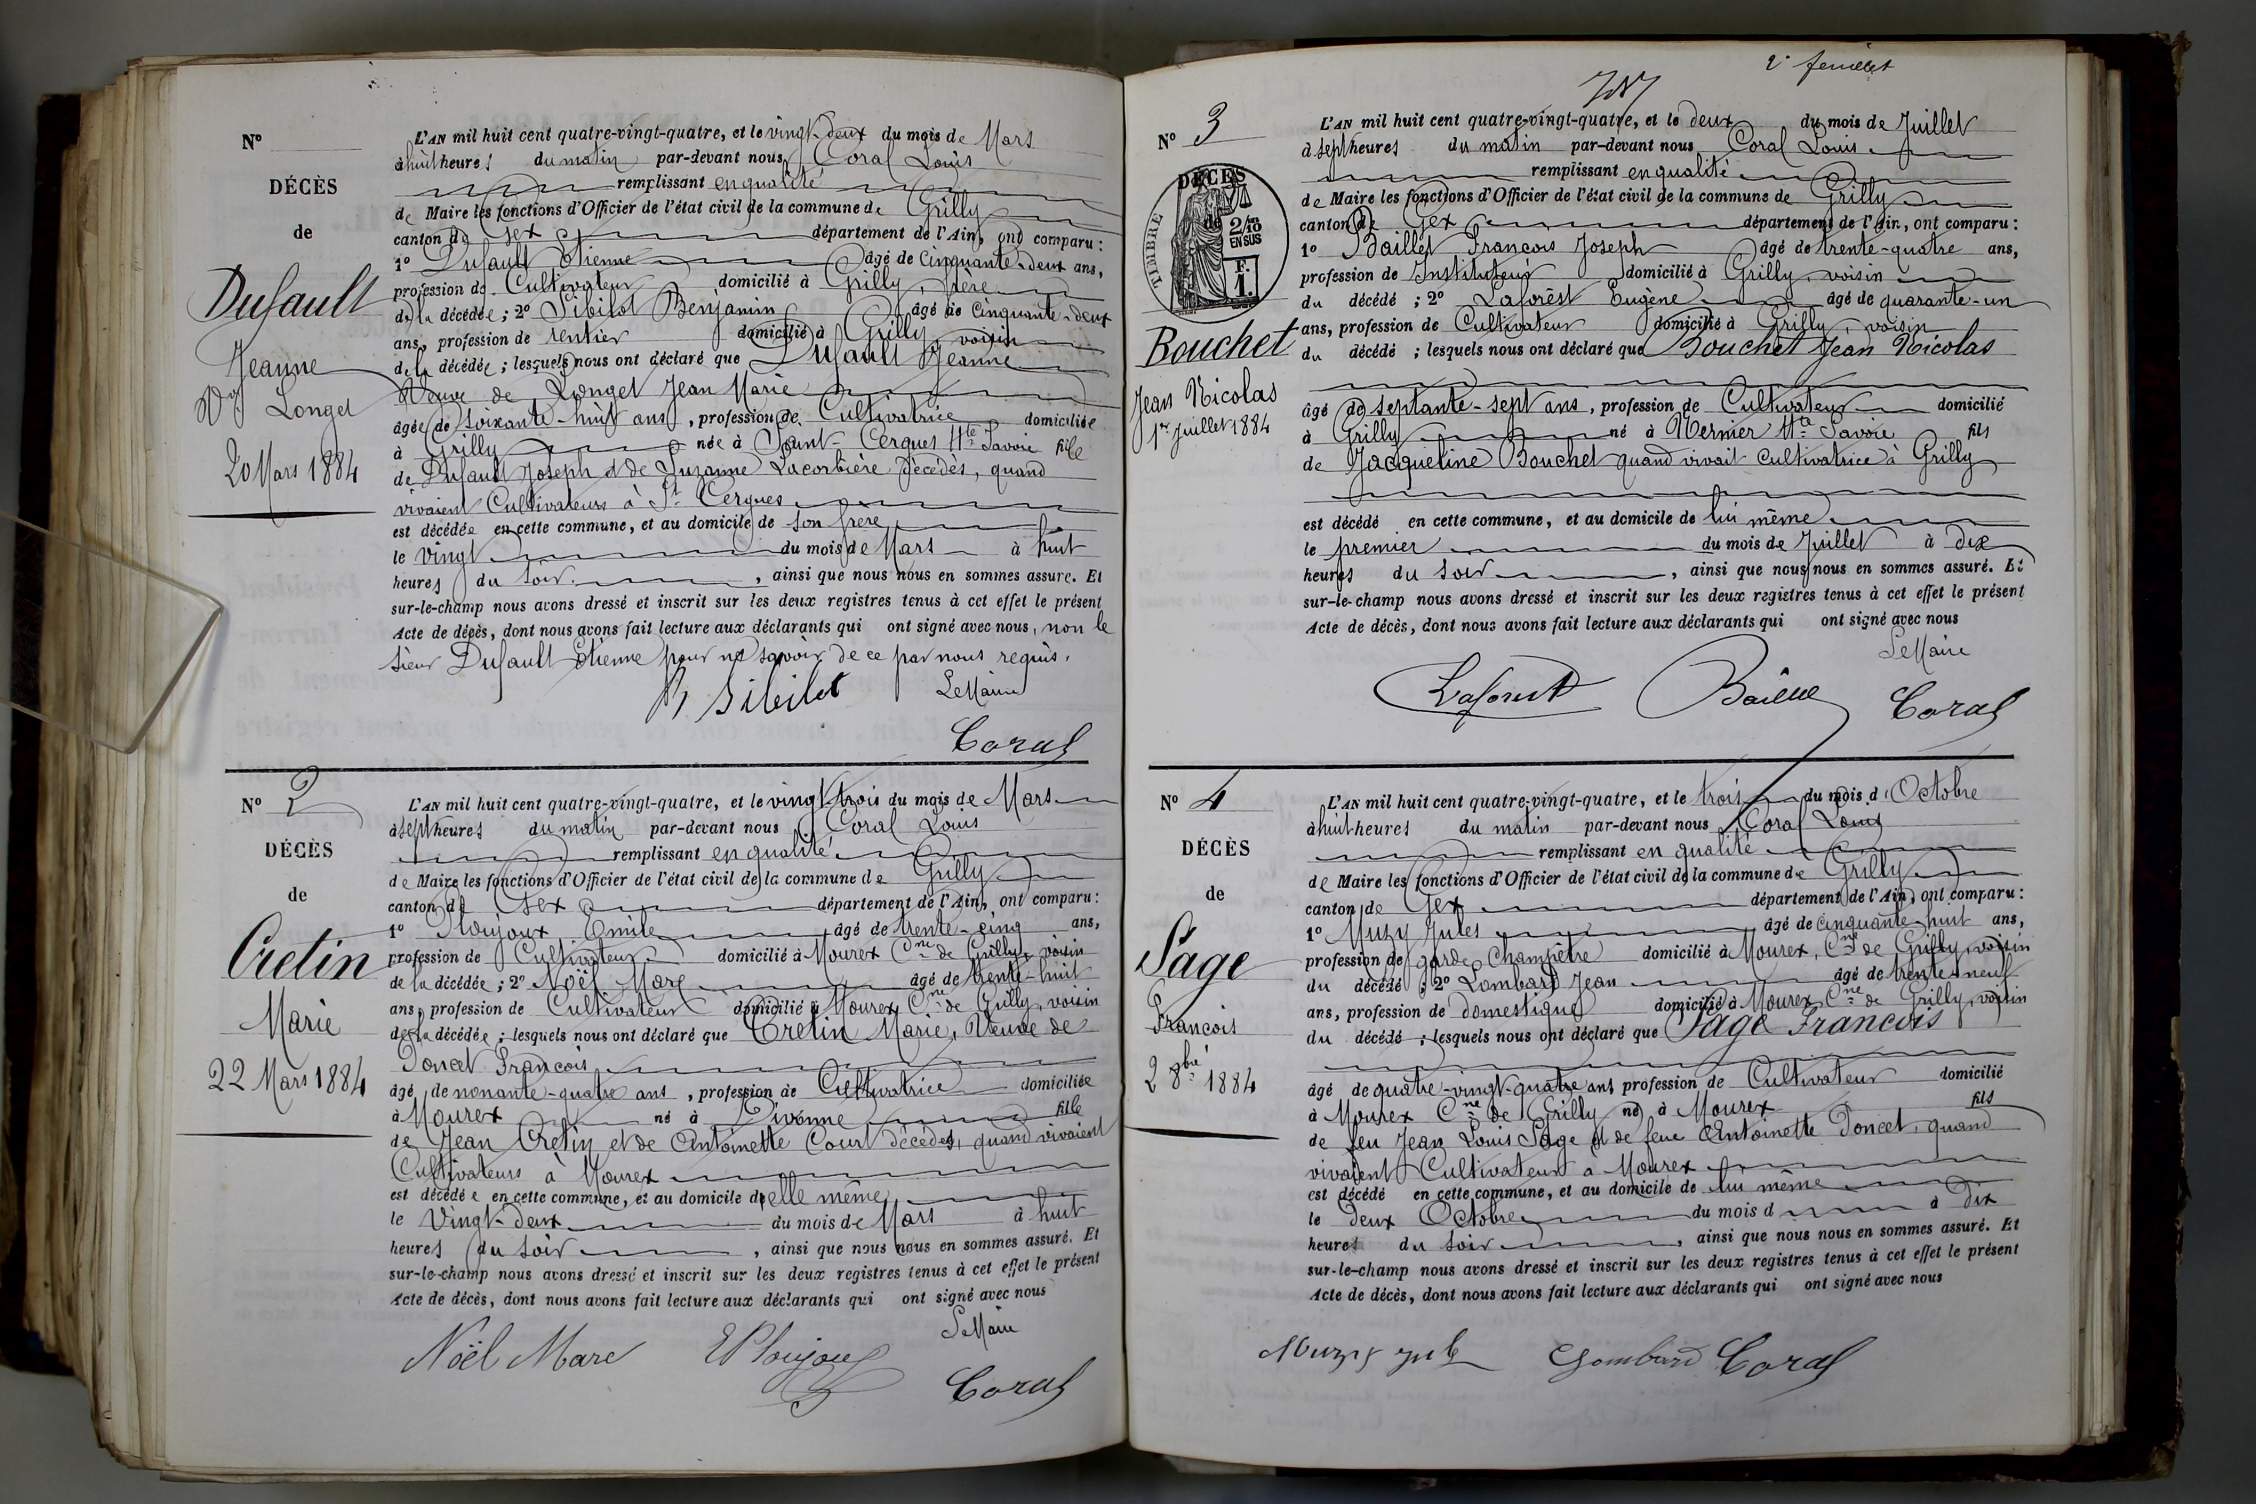 Nº
DÉCÈS
de
Dufault
Jeanne
Vve Longet
20 Mars 1884
L'AN mil huit cent quatre-vingt-quatre, et le vingt-deux du mois de Mars
à huit heures du matin par-devant nous Coral Louis
remplissant en qualité
de Maire les fonctions d'Officier de l'état civil de la commune de Grilly
canton de Gex département de l'Ain, ont comparu :
1º Dufault Etienne âgé de Cinquante-deux ans,
profession de Cultivateur domicilié à Grilly, frère
de la décédée ; 2º Sibilot Benjamin âgé de Cinquante-deux
ans, profession de rentier domicilié à Grilly, voisin
de la décédée ; lesquels nous ont déclaré que Dufault Jeanne
Veuve de Longet Jean Marie
âgée de soixante-huit ans, profession de Cultivatrice domiciliée
à Grilly née à Saint-Cergues Hte Savoie fille
de Dufault Joseph et de Suzanne Lacorbière décédés, quand
vivaient Cultivateurs à St Cergues
est décédée en cette commune, et au domicile de son frère
le vingt du mois de Mars à huit
heures du soir, ainsi que nous nous en sommes assuré. Et
sur-le-champ nous avons dressé et inscrit sur les deux registres tenus à cet effet le présent
Acte de décès, dont nous avons fait lecture aux déclarants qui ont signé avec nous, non le
sieur Dufault Etienne pour ne savoir de ce par nous requis.
B Sibilot Le Maire
Coral
Nº 2
DÉCÈS
de
Cretin
Marie
22 Mars 1884
L'AN mil huit cent quatre-vingt-quatre, et le vingt-trois du mois de Mars
à sept heures du matin par-devant nous Coral Louis
remplissant en qualité
de Maire les fonctions d'Officier de l'état civil de la commune de Grilly
canton de Gex département de l'Ain, ont comparu :
1º Ploujoux Emile âgé de trente-cinq ans,
profession de Cultivateur domicilié à Mourex Cne de Grilly, voisin
de la décédée ; 2º Noël Marc âgé de trente-huit
ans, profession de Cultivateur domicilié à Mourex Cne de Grilly, voisin
de la décédée ; lesquels nous ont déclaré que Cretin Marie, Veuve de
Poncet François
âgé de nonante-quatre ans, profession de Cultivatrice domiciliée
à Mourex né à Divonne fille
de Jean Cretin et de Antoinette Court décédés, quand vivaient
Cultivateurs à Mourex
est décédée en cette commune, et au domicile d'elle même
le Vingt-deux du mois de Mars à huit
heures du soir, ainsi que nous nous en sommes assuré. Et
sur-le-champ nous avons dressé et inscrit sur les deux registres tenus à cet effet le présent
Acte de décès, dont nous avons fait lecture aux déclarants qui ont signé avec nous
Le Maire
Noël Marc E Ploujoux
Coral
2e feuillet
Nº 3
DÉCÈS
de
TIMBRE
2/10 EN SUS
F. 1.
Bouchet
Jean Nicolas
1er Juillet 1884
L'AN mil huit cent quatre-vingt-quatre, et le deux du mois de Juillet
à sept heures du matin par-devant nous Coral Louis
remplissant en qualité
de Maire les fonctions d'Officier de l'état civil de la commune de Grilly
canton de Gex département de l'Ain, ont comparu :
1º Baillet François Joseph âgé de trente-quatre ans,
profession de Instituteur domicilié à Grilly, voisin
du décédé ; 2º Laforêst Eugène âgé de quarante-un
ans, profession de Cultivateur domicilié à Grilly, voisin
du décédé ; lesquels nous ont déclaré que Bouchet Jean Nicolas
âgé de septante-sept ans, profession de Cultivateur domicilié
à Grilly né à Nernier Hte Savoie fils
de Jacqueline Bouchet quand vivait cultivatrice à Grilly
est décédé en cette commune, et au domicile de lui même
le premier du mois de Juillet à dix
heures du soir, ainsi que nous nous en sommes assuré. Et
sur-le-champ nous avons dressé et inscrit sur les deux registres tenus à cet effet le présent
Acte de décès, dont nous avons fait lecture aux déclarants qui ont signé avec nous
Le Maire
Laforest Coral
Nº 4
DÉCÈS
de
Sage
François
2 8bre 1884
L'AN mil huit cent quatre-vingt-quatre, et le trois du mois d'Octobre
à huit heures du matin par-devant nous Coral Louis
remplissant en qualité
de Maire les fonctions d'Officier de l'état civil de la commune de Grilly
canton de Gex département de l'Ain, ont comparu :
1º Muzy Jules âgé de cinquante-huit ans,
profession de garde Champêtre domicilié à Mourex, Cne de Grilly, voisin
du décédé ; 2º Lombard Jean âgé de trente-neuf
ans, profession de domestique domicilié à Mourex, Cne de Grilly, voisin
du décédé ; lesquels nous ont déclaré que Sage François
âgé de quatre-vingt-quatre ans profession de Cultivateur domicilié
à Mourex Cne de Grilly né à Mourex fils
de feu Jean Louis Sage et de feue Antoinette Poncet, quand
vivaient Cultivateurs à Mourex
est décédé en cette commune, et au domicile de lui même
le deux Octobre du mois d à Dix
heures du soir, ainsi que nous nous en sommes assuré. Et
sur-le-champ nous avons dressé et inscrit sur les deux registres tenus à cet effet le présent
Acte de décès, dont nous avons fait lecture aux déclarants qui ont signé avec nous
Muzy jule Lombard Coral